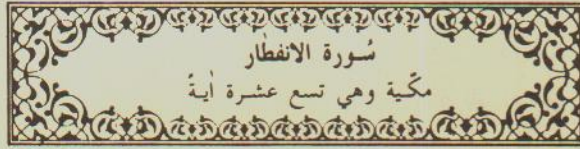 سُورة الانفطار
مكّية وهي تسع عشرة اٰيةً